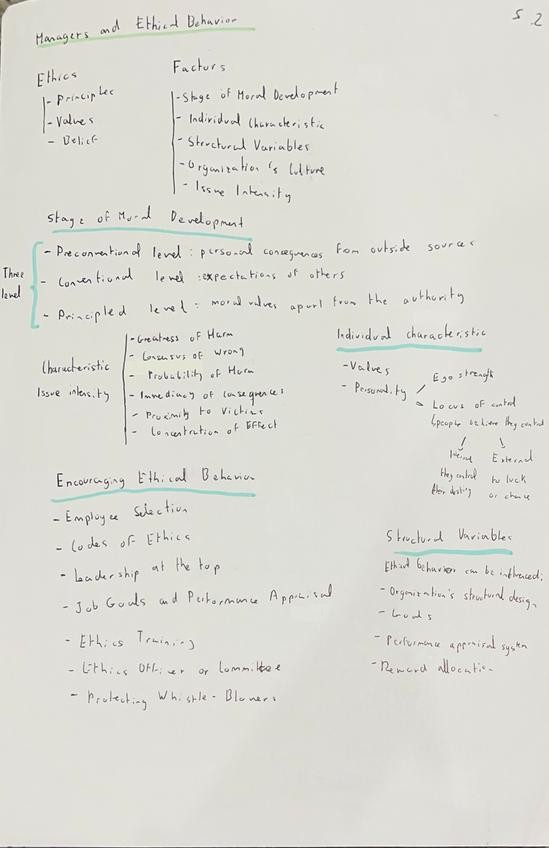 5.2
Managers and Ethical Behavior
Ethics
- Principles
- Values
- Belief
Factors
- Stage of Moral Development
- Individual Characteristic
- Structural Variables
- Organization's Culture
- Issue Intensity
Stage of Moral Development
Three level
- Preconventional level : personal consequences from outside sources
- Conventional level : expectations of others
- Principled level : moral values apart from the authority
Characteristic
Issue intensity
- Greatness of Harm
- Consensus of Wrong
- Probability of Harm
- Immediacy of Consequences
- Proximity to Victims
- Concentration of Effect
Individual characteristic
- Values
- Personality
Ego strength
Locus of control
people believe they control
Internal
they control
their destiny
External
to luck
or chance
Encouraging Ethical Behavior
- Employee Selection
- Codes of Ethics
- Leadership at the top
- Job Goals and Performance Appraisal
- Ethics Training
- Ethics Officer or Committee
- Protecting Whistle-Blowers
Structural Variables
Ethical behavior can be influenced:
- Organization's structural design
- Goals
- Performance appraisal system
- Reward allocation